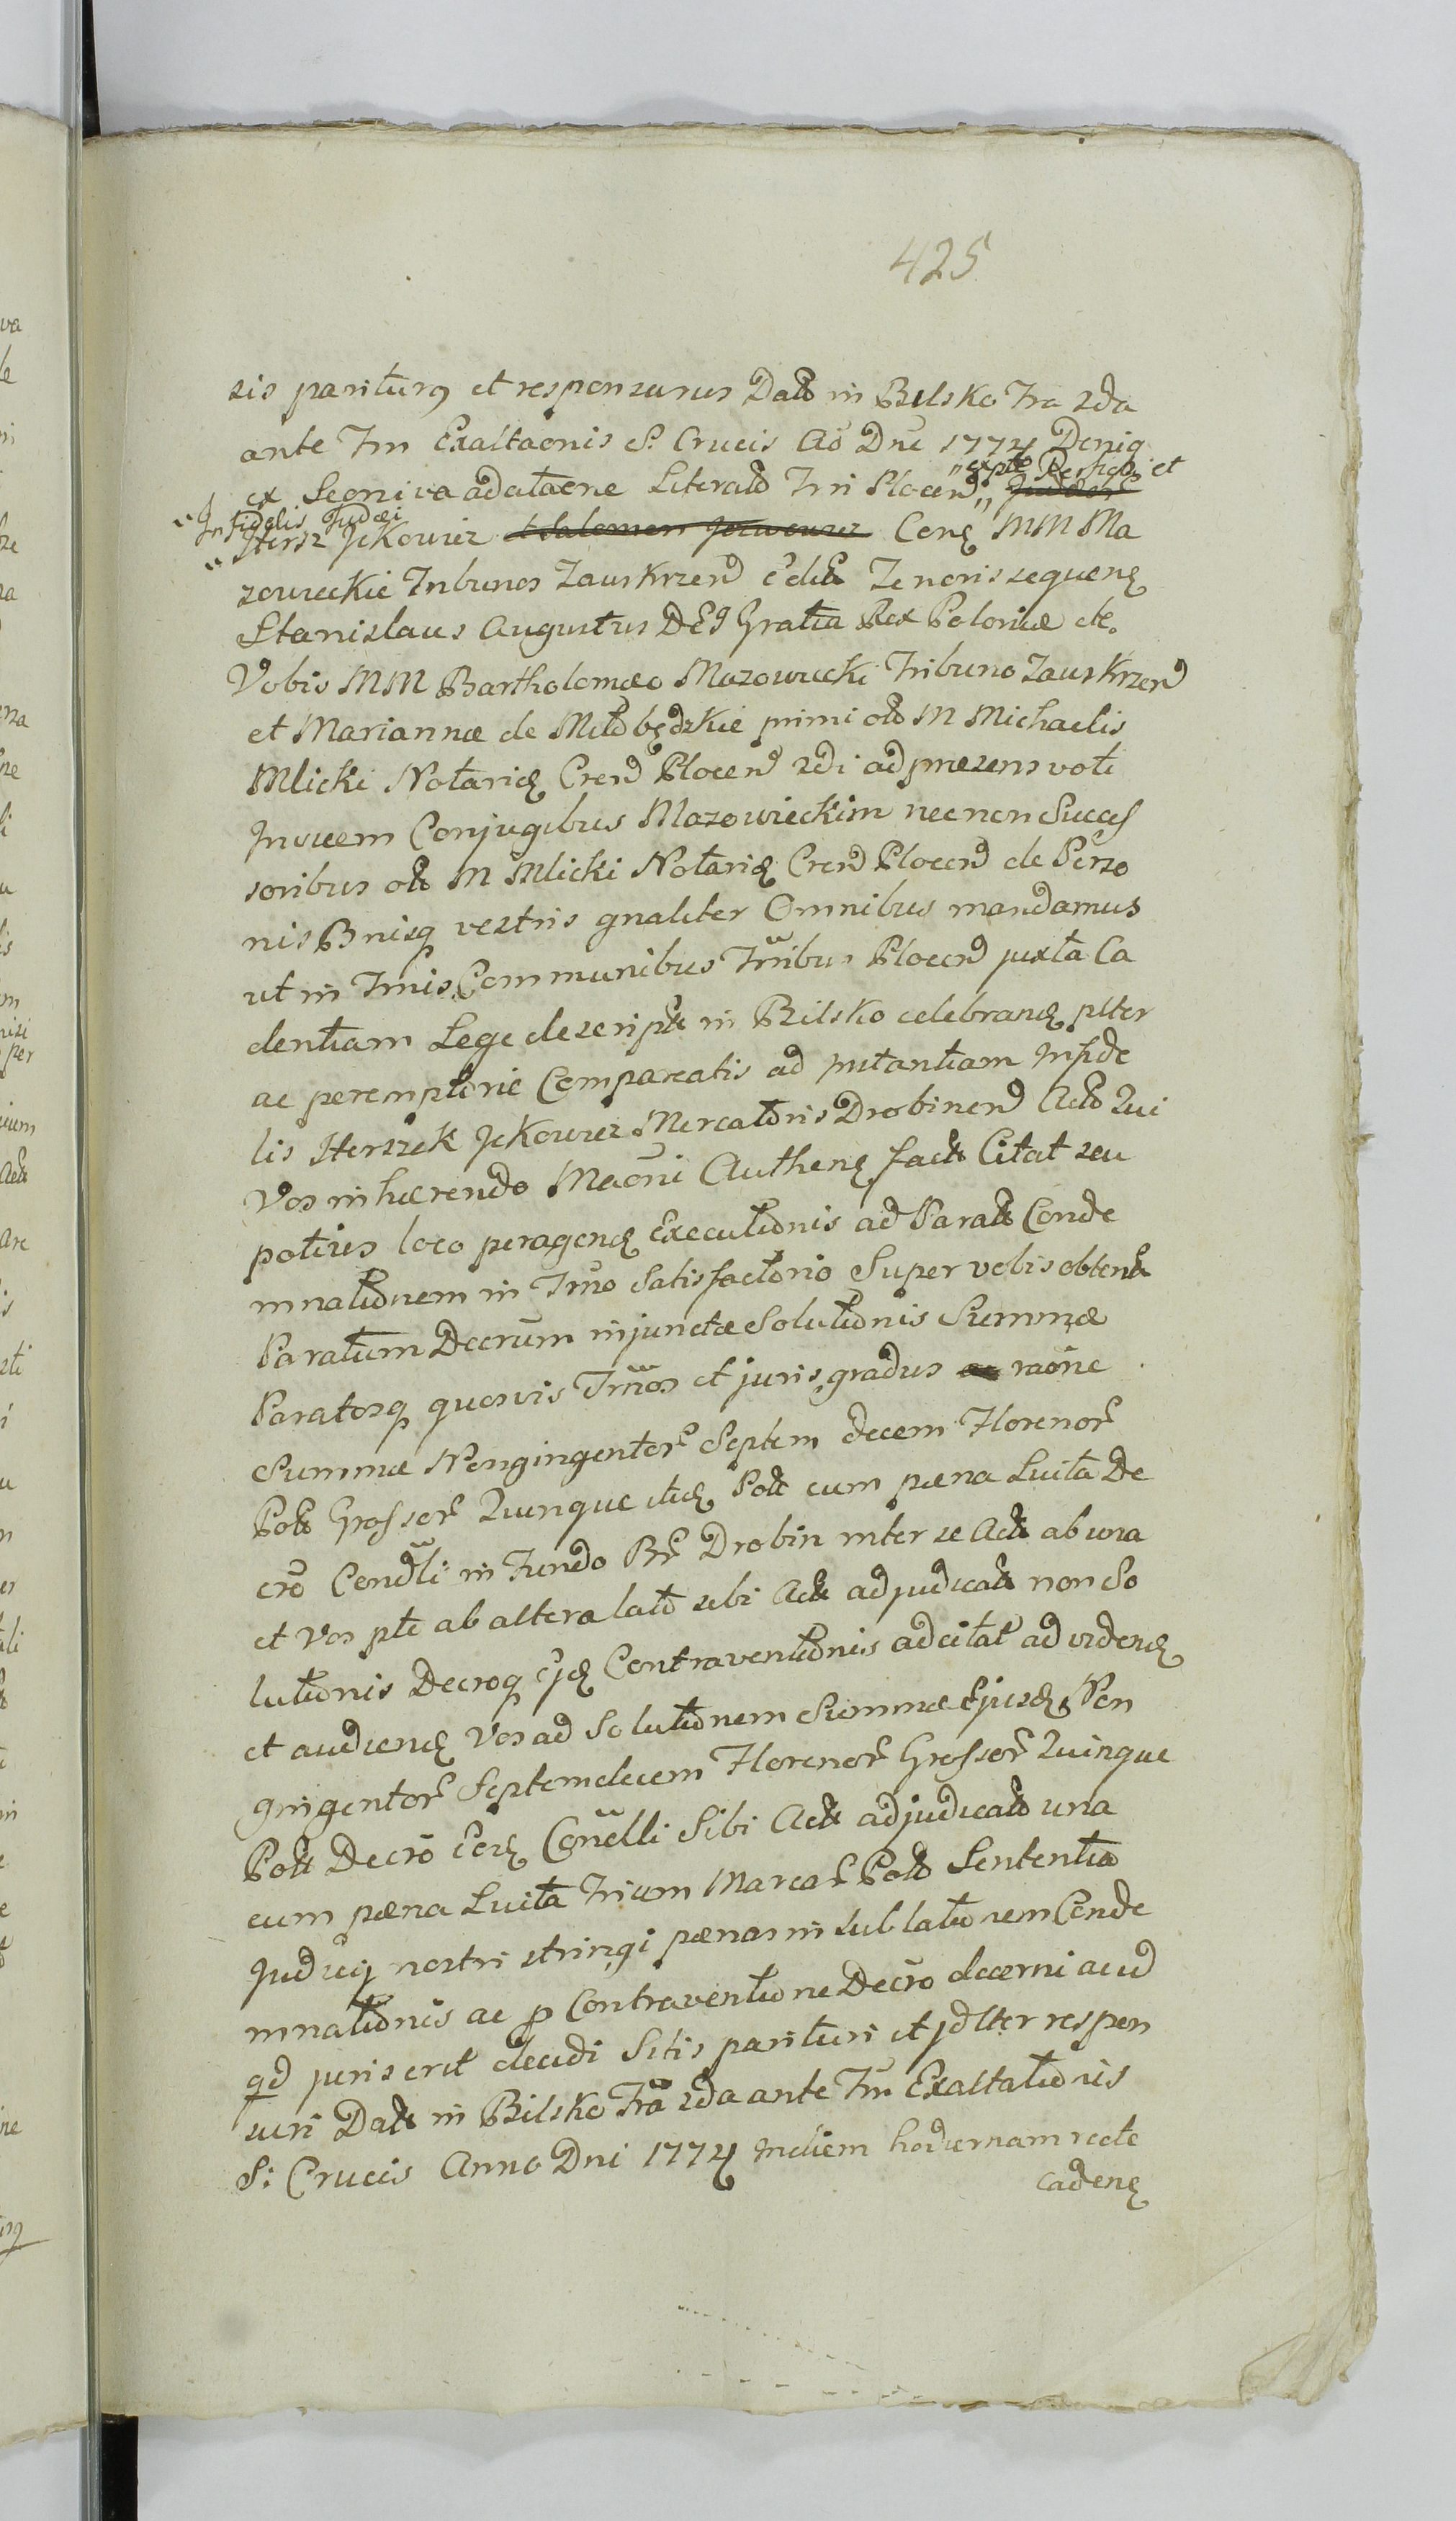 425
sis paritury et responsurus Datt in Bilsko Fra 2da
ante Fm Exaltaonis S. Crucis Aō Dni 1774 Deniq
ex Segniva adcitaone Literatt Trri Plocen "expte Perfid: et
"Infidelis Judæi
Hersz Jckowicz et Salomon Jozwowicz Conę MM Ma
zowieckie Tribunos Zauskrzen Tenoris sequenę
Stanislaus Augustus DEI Gratia Rex Poloniæ etc.
Vobis MM Bartholomæo Mazowiecki Tribuno Zauskrzen
et Mariannæ de Miłobędzkie primi ott M Michaelis
Mlicki Notarię Cren Plocen 2di ad præsens voti
Invicem Conjugibus Mazowieckim necnon Succes
soribus ott M Mlicki Notarię Cren Plocen de Perso
nis Bnisq vestris gnaliter Omnibus mandamus
ut in Tmis Communibus Trribus Plocen juxta Ca
dentiam Lege descriptt in Bilsko celebranę plter
ac peremptorie Compareatis ad instantiam Infide
lis Herszek Jckowicz Mercatoris Drobinen Actt Qui
Vos inhærendo Maoni Authenę factt Citat seu
potius loco peragenę Executionis ad Paratt Conde
mnationem in Tmo Satisfactorio Super vobis obtentt
Paratum Decrum injunctæ Solutionis Summæ
Paratosq quosvis Tmos et juris gradus raone
Summæ Nongingentor Septem decem Florenor
Poltt Grossor Quinque ituę Poltt cum pæna Luita De
cro Condli in Fundo Br Drobin inter se Actt ab una
et Vos pte ab altera latt sibi Actt adjudicatt non So
lutionis Decroq eję Contraventionis adcitat ad videnę
et audienę Vos ad Solutionem Summæ Ejusdę Non
gingentor Septemdecem Florenor Grossor Quinque
Poltt Decro Eorę Conelli Sibi Actt adjudicatt una
cum pæna Luita Trium Marcar Poltt Sententia
Judicij nostri stringi pænas in sublationem Conde
mnationis ac p Contraventione Decro decerni acid
qd juris erit decidi Sitis parituri et jdlter respon
suri Datt in Bilsko Fra 2da ante Fm Exaltationis
S: Crucis Anno Dni 1774 Indiem hodiernam recte
cadenę